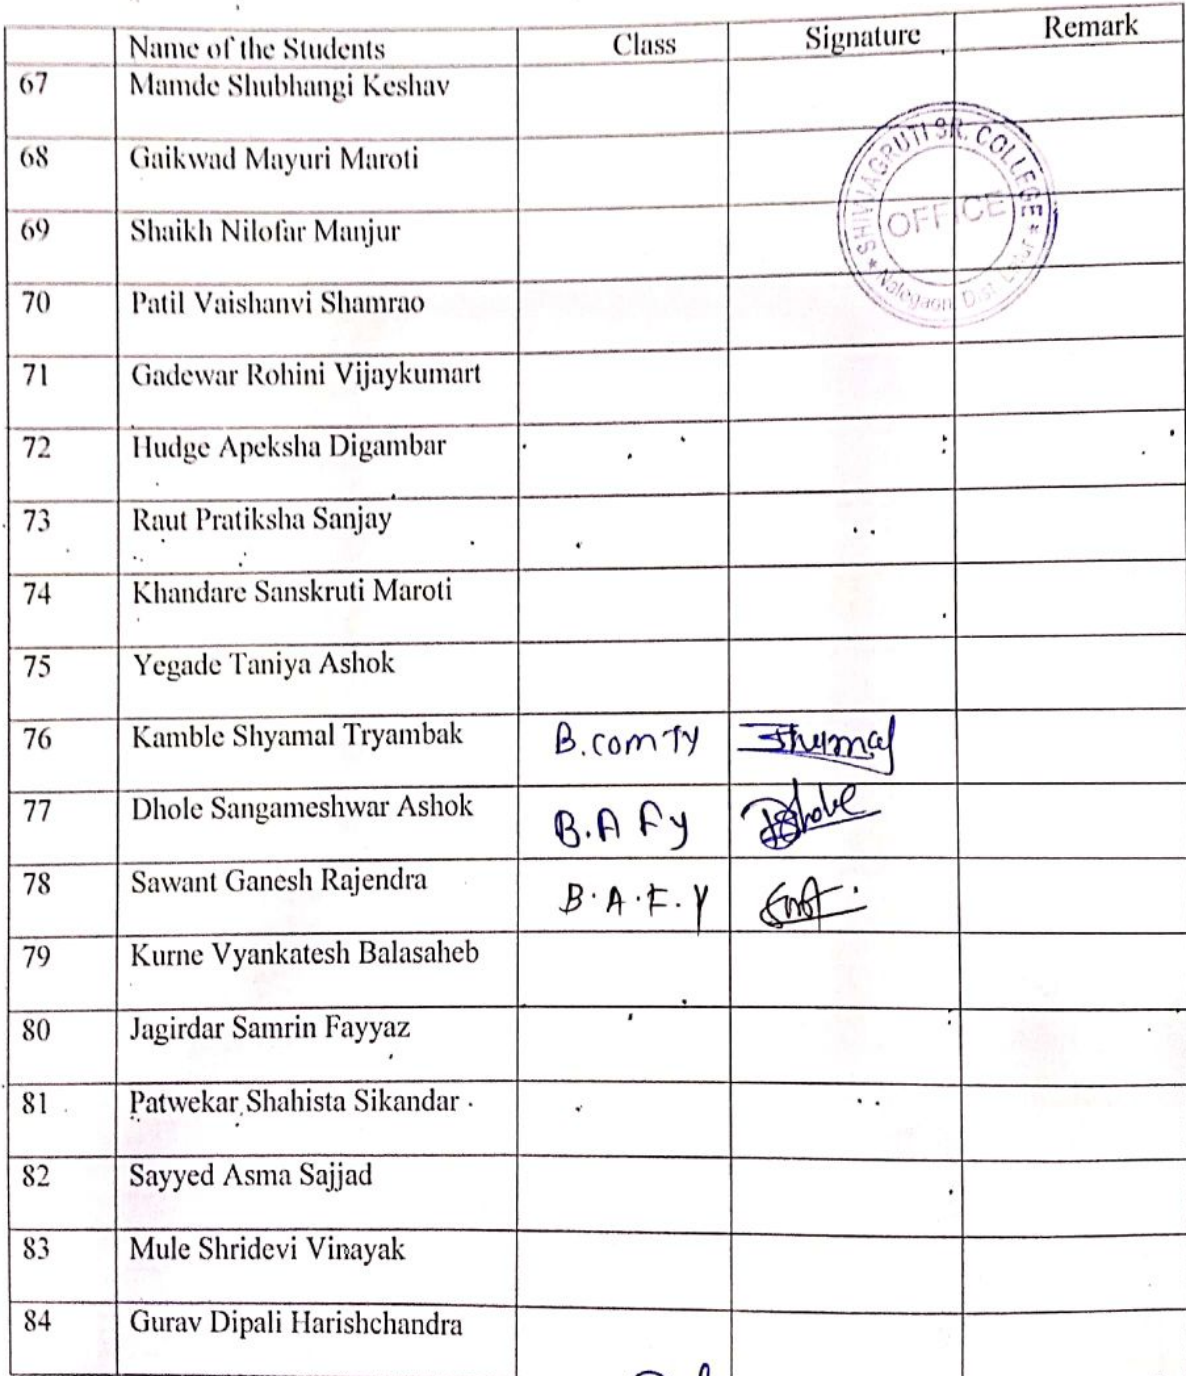 Name of the Students Class Signature Remark
67 Mamde Shubhangi Keshav
68 Gaikwad Mayuri Maroti
69 Shaikh Nilofar Manjur
70 Patil Vaishanvi Shamrao
71 Gadewar Rohini Vijaykumart
72 Hudge Apeksha Digambar
73 Raut Pratiksha Sanjay
74 Khandare Sanskruti Maroti
75 Yegade Taniya Ashok
76 Kamble Shyamal Tryambak B.com TY
77 Dhole Sangameshwar Ashok B.A Fy Dhole
78 Sawant Ganesh Rajendra B.A.F.Y
79 Kurne Vyankatesh Balasaheb
80 Jagirdar Samrin Fayyaz
81 Patwekar Shahista Sikandar
82 Sayyed Asma Sajjad
83 Mule Shridevi Vinayak
84 Gurav Dipali Harishchandra
SHIVJAGRUTI SR. COLLEGE
OFFICE
Nalegaon, Dist. Latur